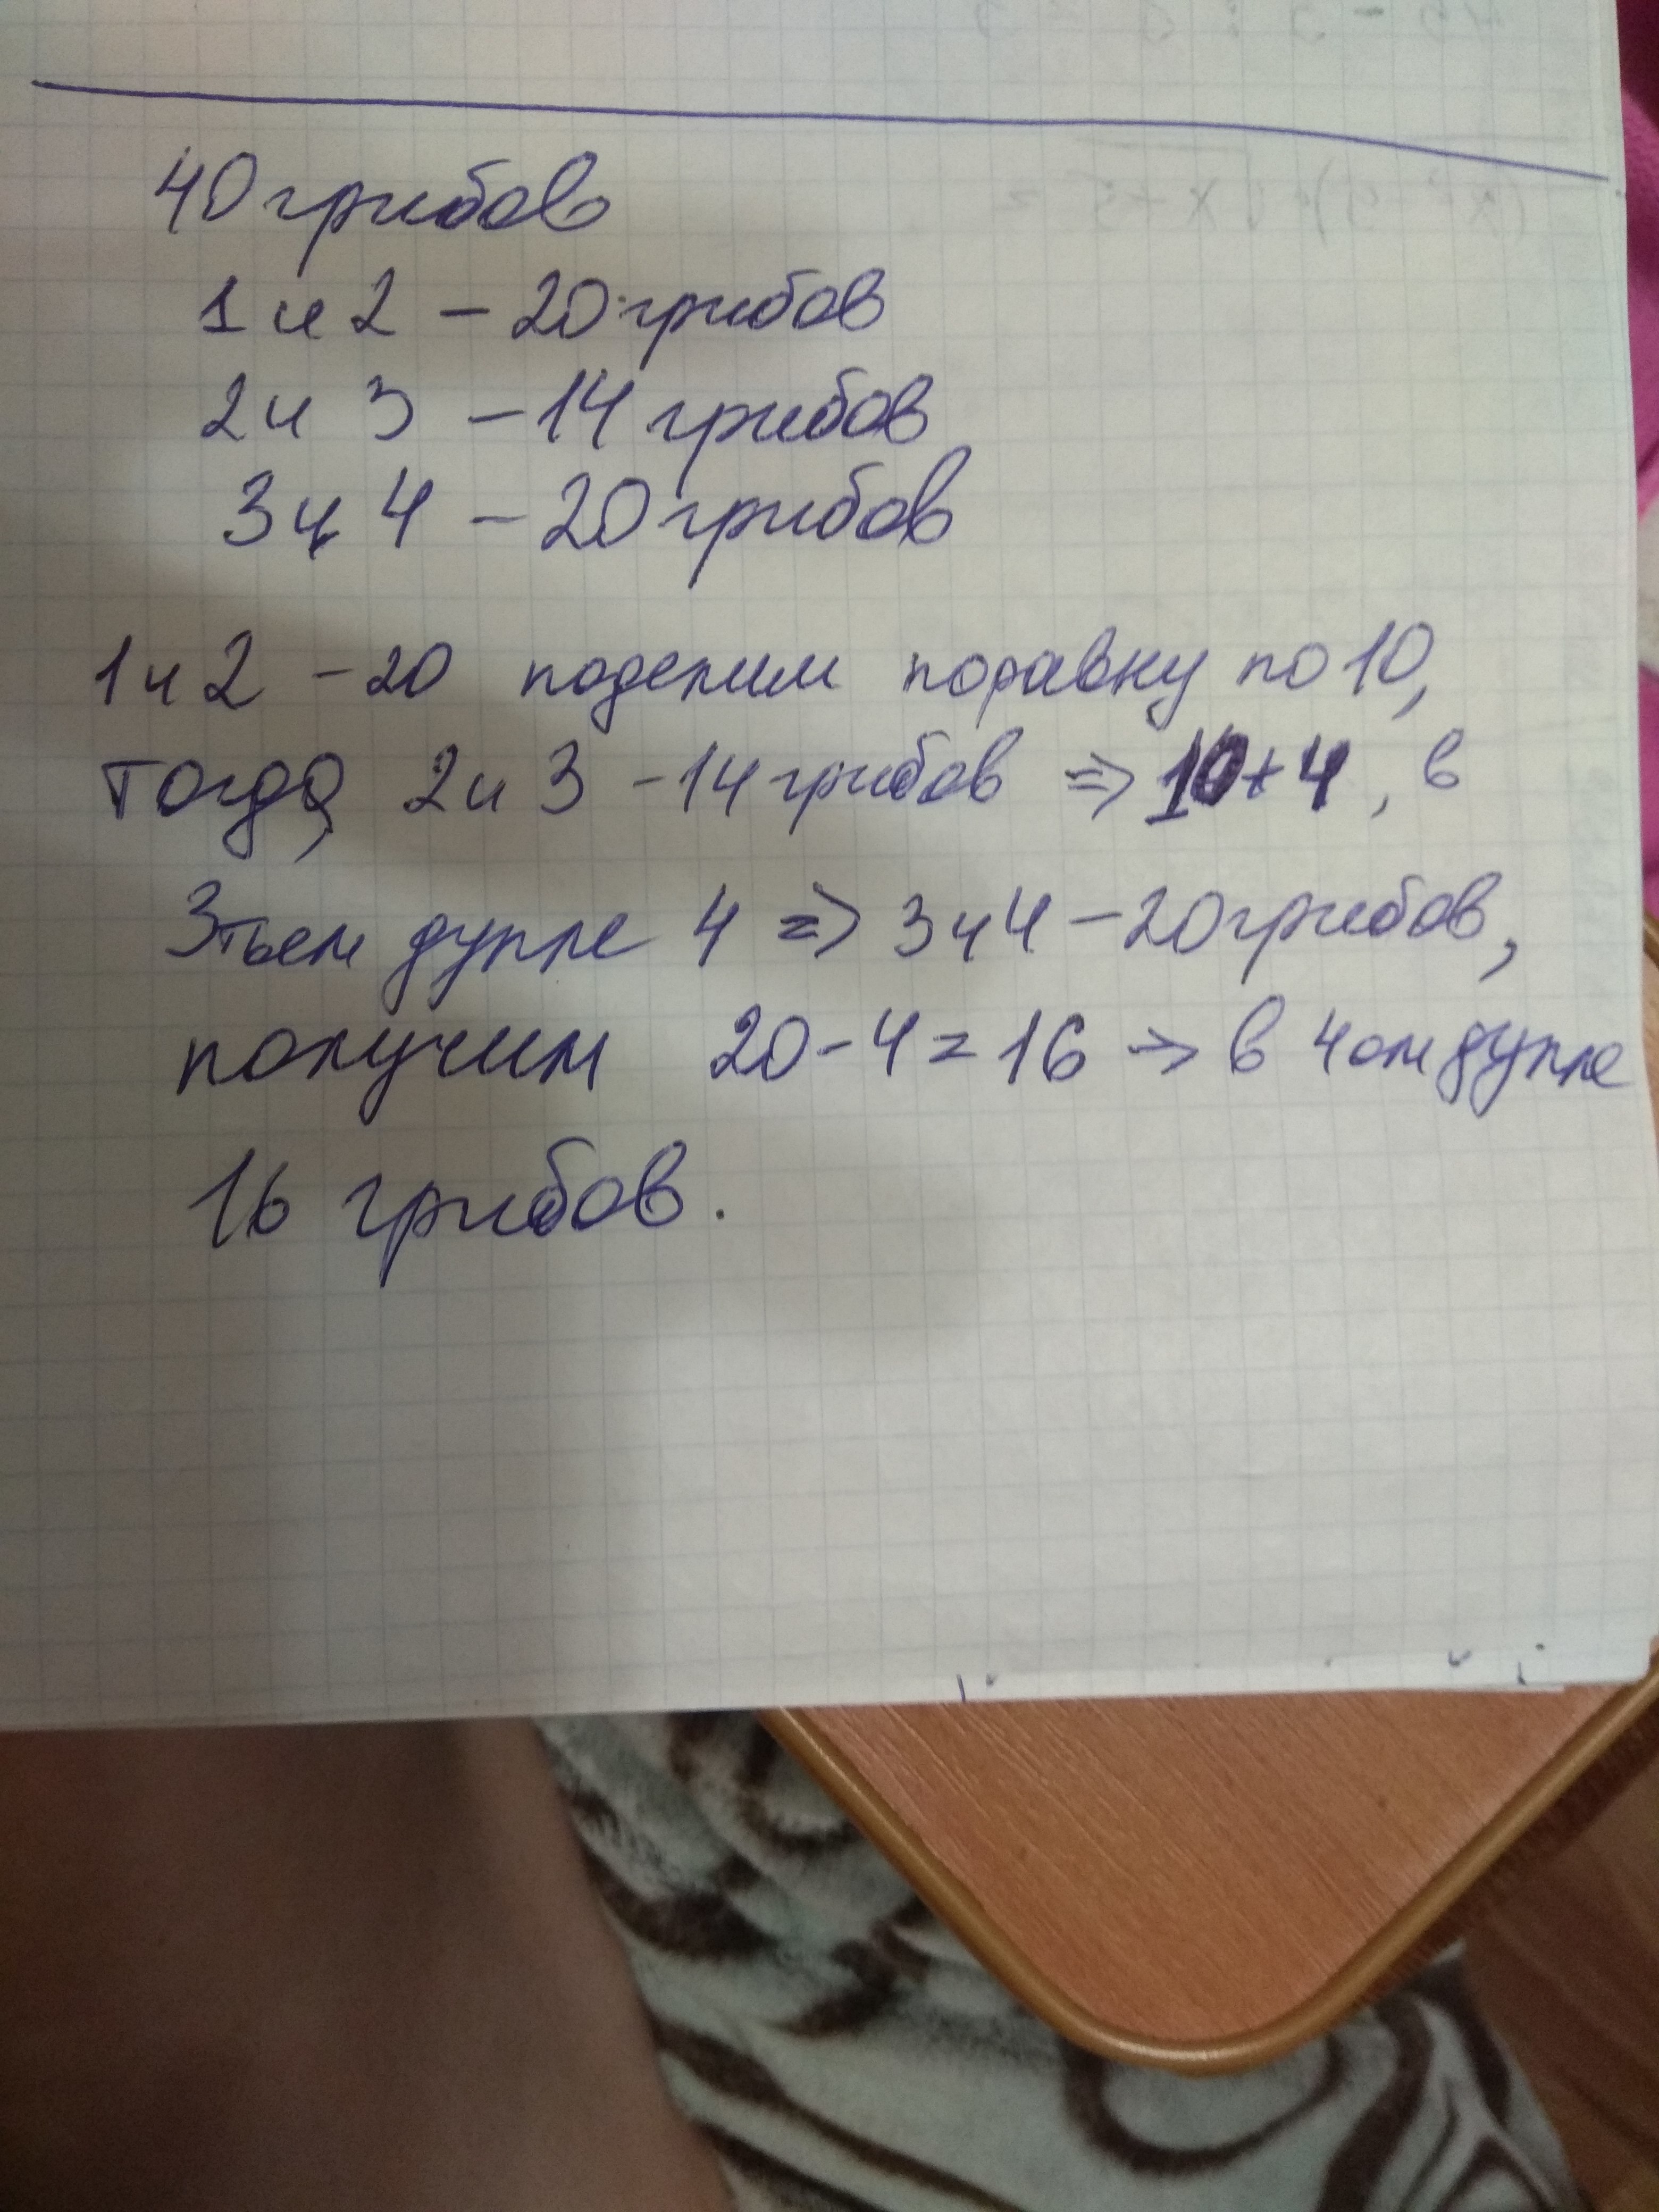 40 грибов
1 и 2 - 20 грибов
2 и 3 - 14 грибов
3 и 4 - 20 грибов
1 и 2 - 20 поделим поравну по 10,
тогда, 2 и 3 - 14 грибов => 10+4, в
3тьем дупле 4 => 3 и 4 - 20 грибов,
получим 20-4=16 -> в 4ом дупле
16 грибов.